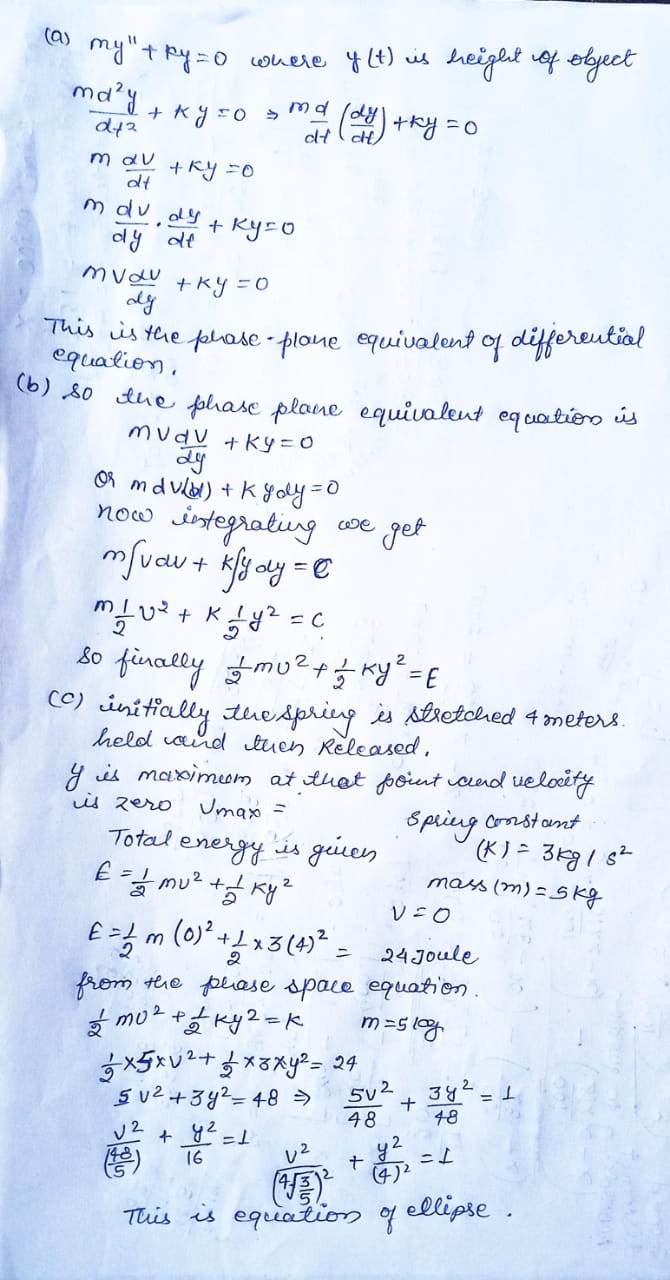 (a) my" + ky = 0 where y(t) is height of object
md²y/dt² + ky = 0 ⇒ m d/dt (dy/dt) + ky = 0
m dv/dt + ky = 0
m dv/dy . dy/dt + ky = 0
mv dv/dy + ky = 0
This is the phase-plane equivalent of differential
equation.
(b) so the phase plane equivalent equation is
mv dv/dy + ky = 0
or m dv + k y dy = 0
now integrating we get
m∫vdv + k∫y dy = C
m 1/2 v² + k 1/2 y² = C
So finally 1/2 mv² + 1/2 ky² = E
(c) initially the spring is stretched 4 meters.
held and then Released.
y is maximum at that point and velocity
is zero Vmax =
Spring constant
Total energy is given
(k) = 3kg/s²
E = 1/2 mv² + 1/2 ky²
mass (m) = 5kg
v = 0
E = 1/2 m (0)² + 1/2 × 3(4)² = 24 Joule
from the phase space equation.
1/2 mv² + 1/2 ky² = k m = 5 kg
1/2 × 5 × v² + 1/2 × 3 × y² = 24
5v² + 3y² = 48 ⇒ 5v²/48 + 3y²/48 = 1
v²/(48/5) + y²/16 = 1
v²/(4√3/5)² + y²/(4)² = 1
This is equation of ellipse.